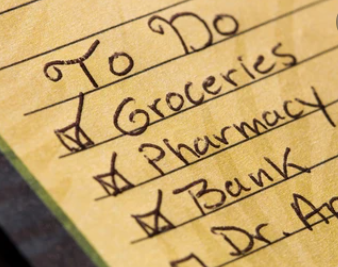 To Do
Groceries
Pharmacy
Bank
Dr.